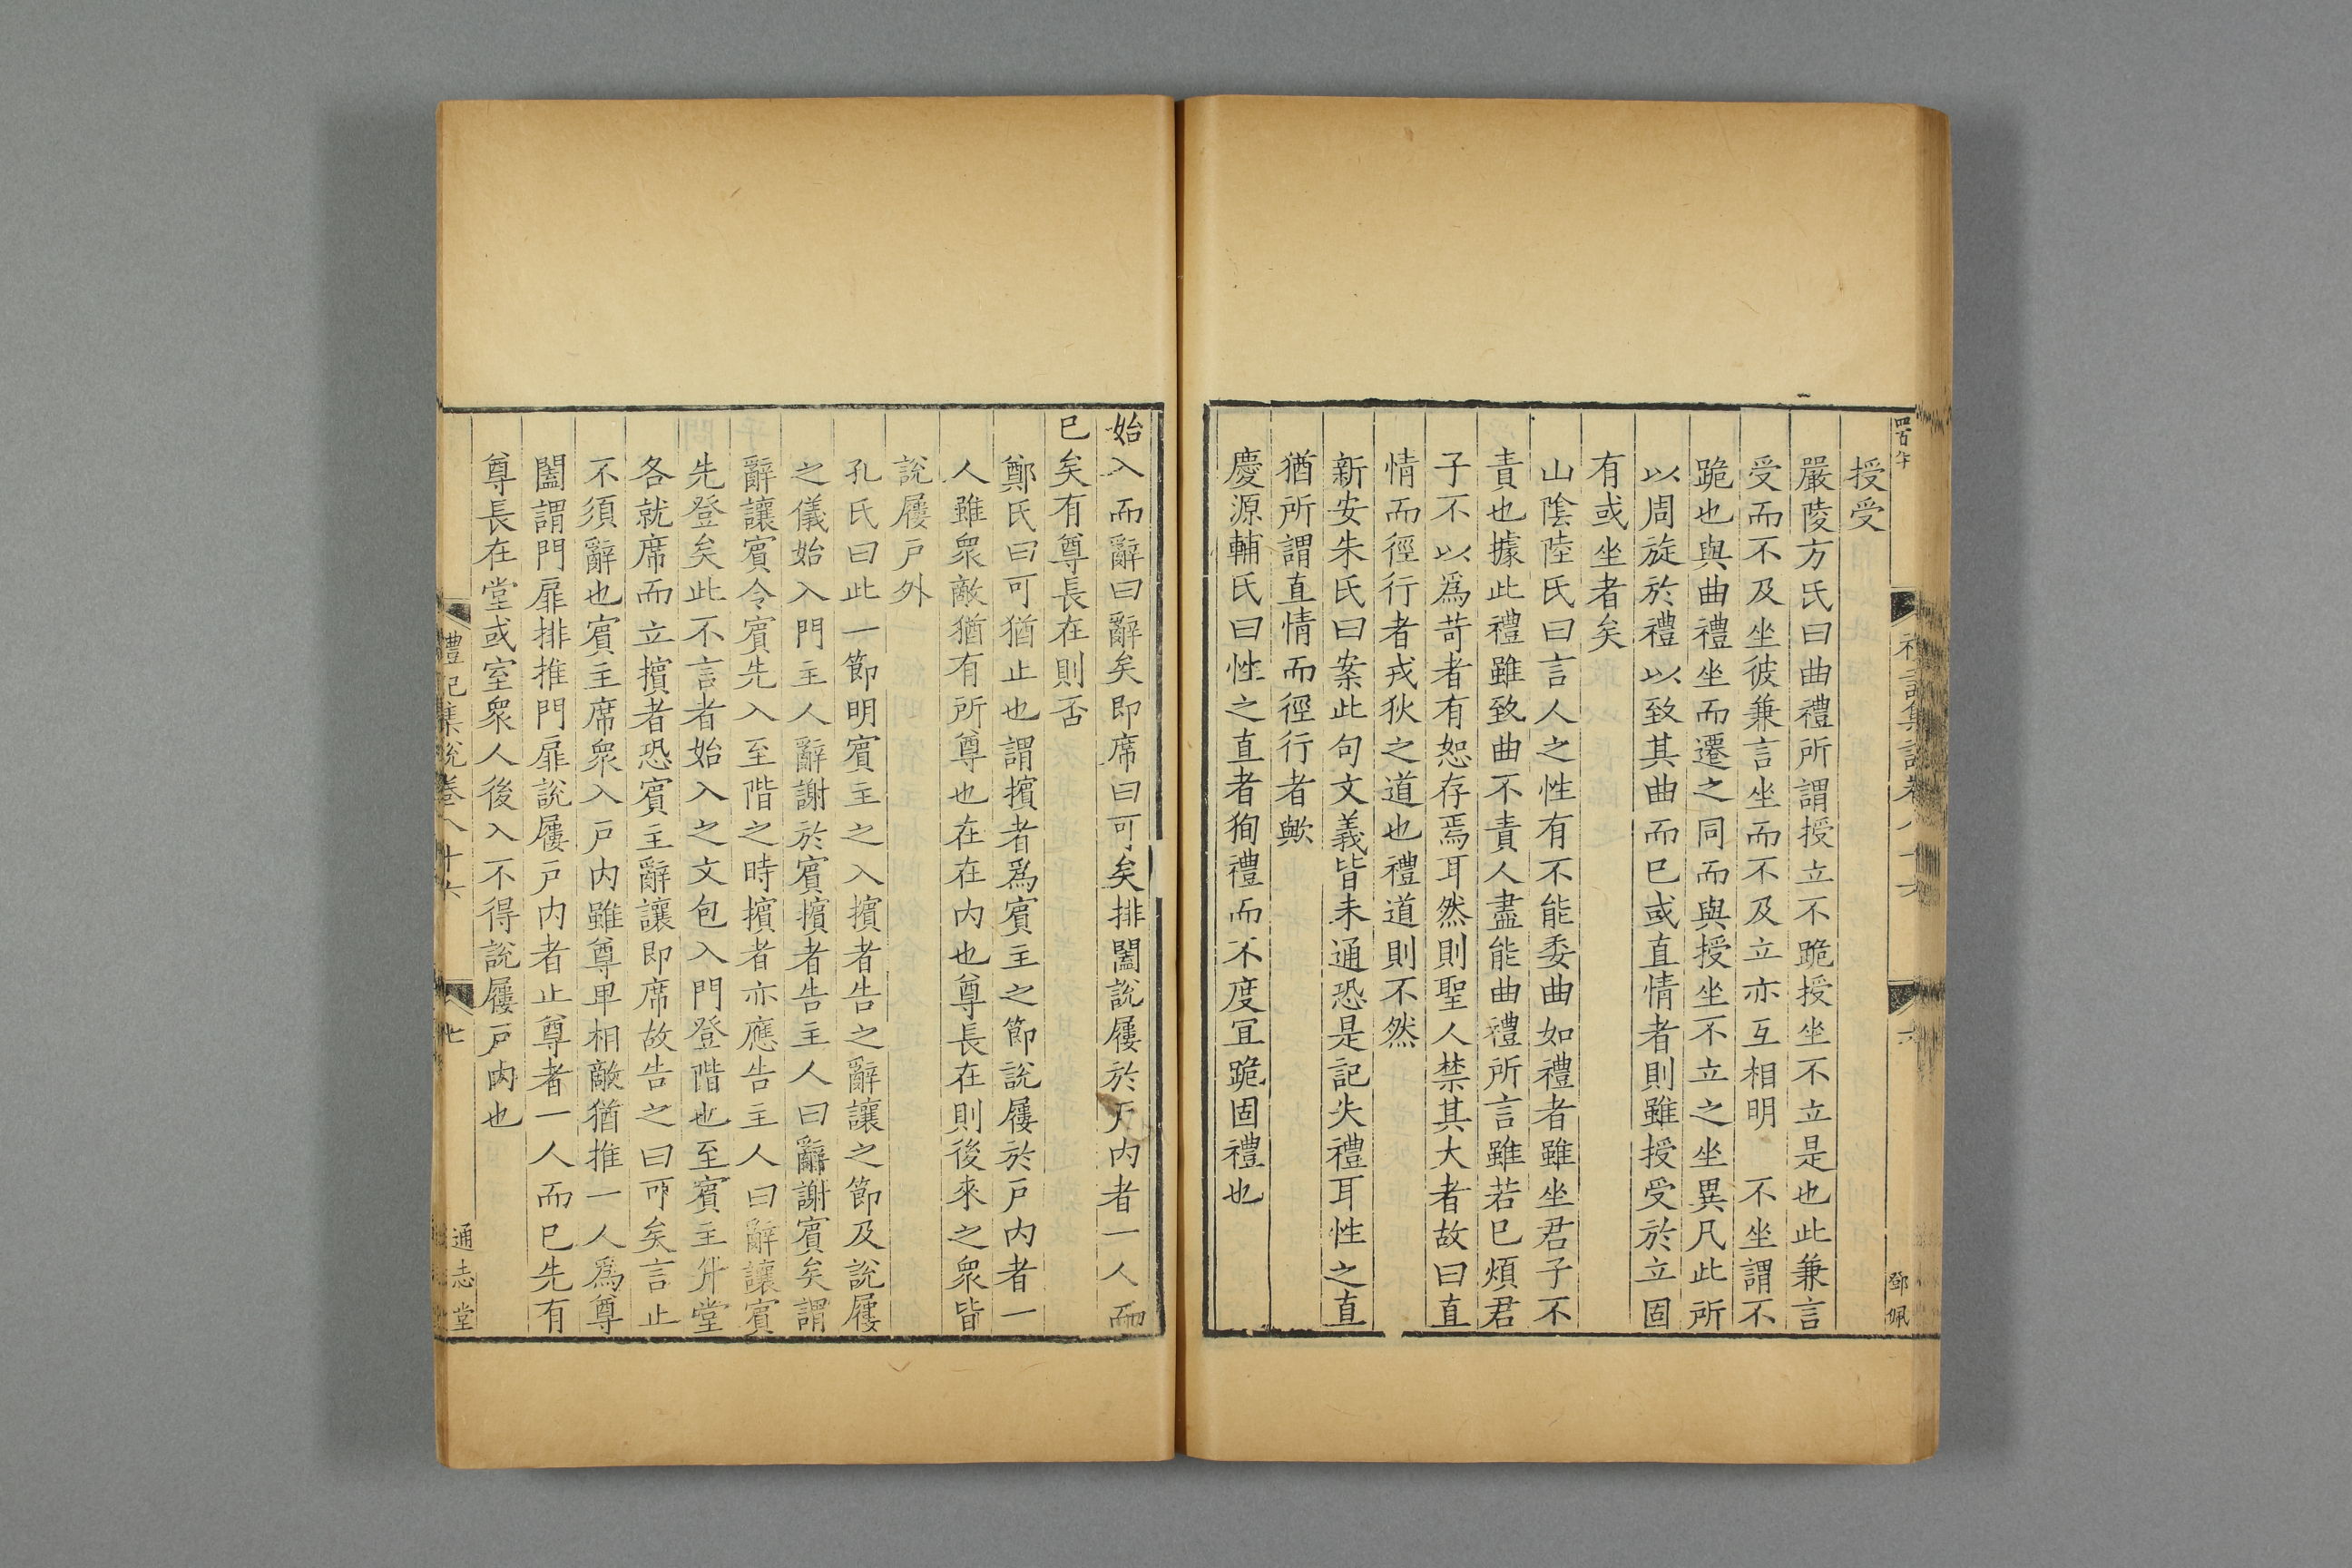 授受
嚴陵方氏曰曲禮所謂授立不跪授坐不立是也此兼言
受而不及坐彼兼言坐而不及立亦互相明　不坐謂不
跪也與曲禮坐而遷之同而與授坐不立之坐異凡此所
以周旋於禮以致其曲而已或直情者則雖授受於立固
有或坐者矣
山陰陸氏曰言人之性有不能委曲如禮者雖坐君子不
責也據此禮雖致曲不責人盡能曲禮所言雖若已煩君
子不以爲苛者有恕存焉耳然則聖人禁其大者故曰直
情而徑行者戎狄之道也禮道則不然
新安朱氏曰案此句文義皆未通恐是記失禮耳性之直
猶所謂直情而徑行者歟
慶源輔氏曰性之直者狥禮而不度宜跪固禮也
鄧佩
始入而辭曰辭矣即席曰可矣排闔說屨於戶内者一人而
已矣有尊長在則否
鄭氏曰可猶止也謂擯者爲賓主之節說屨於戶内者一
人雖衆敵猶有所尊也在在内也尊長在則後來之衆皆
說屨戶外
孔氏曰此一節明賓主之入擯者告之辭讓之節及說屨
之儀始入門主人辭謝於賓擯者告主人曰辭謝賓矣謂
辭讓賓令賓先入至階之時擯者亦應告主人曰辭讓賓
先登矣此不言者始入之文包入門登階也至賓主升堂
各就席而立擯者恐賓主辭讓即席故告之曰可矣言止
不須辭也賓主席衆入戶内雖尊卑相敵猶推一人爲尊
闔謂門扉排推門扉說屨戶内者止尊者一人而已先有
尊長在堂或室衆人後入不得說屨戶内也
禮記集說卷八十六
七
通志堂